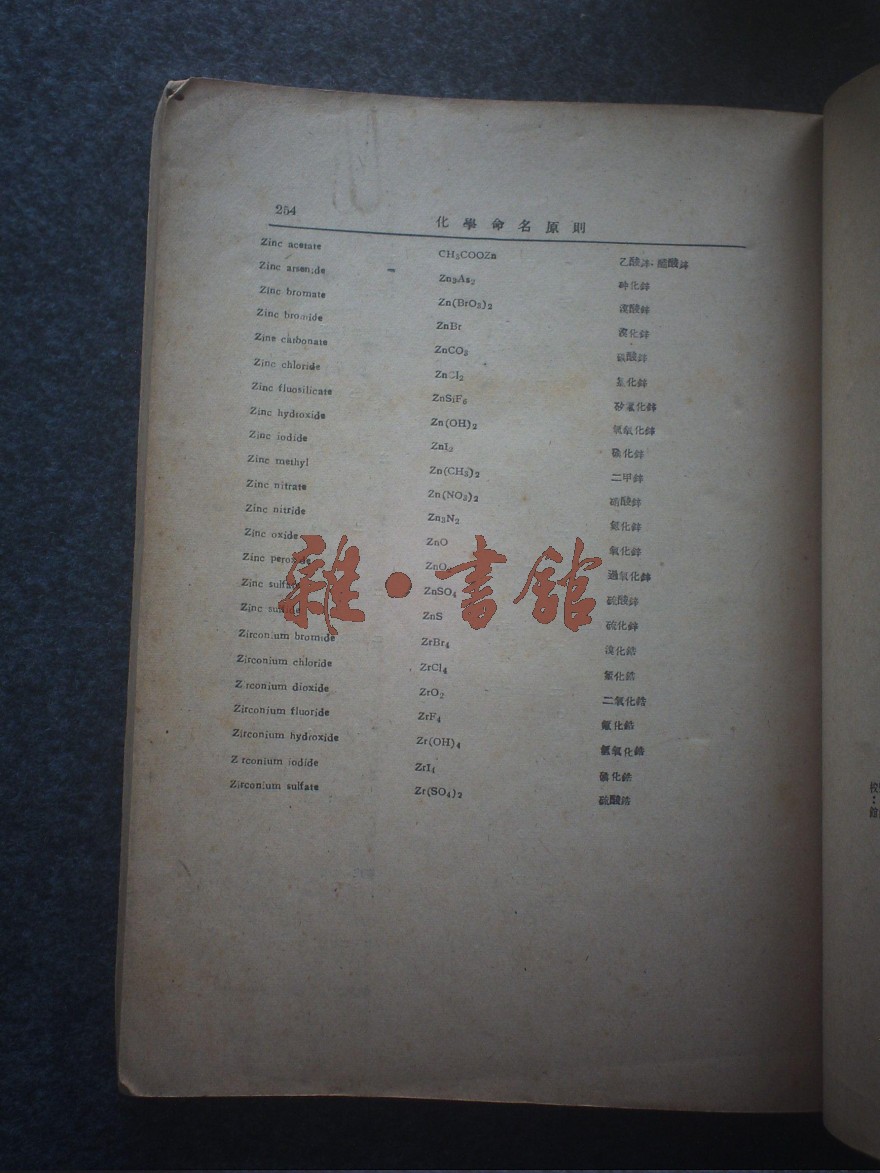 254
化學命名原則
Zinc acetate CH₃COOZn 乙酸鋅·醋酸鋅
Zinc arsenide Zn₃As₂ 砷化鋅
Zinc bromate Zn(BrO₃)₂ 溴酸鋅
Zinc bromide ZnBr 溴化鋅
Zinc carbonate ZnCO₃ 碳酸鋅
Zinc chloride ZnCl₂ 氯化鋅
Zinc fluosilicate ZnSiF₆ 矽氟化鋅
Zinc hydroxide Zn(OH)₂ 氫氧化鋅
Zinc iodide ZnI₂ 碘化鋅
Zinc methyl Zn(CH₃)₂ 二甲鋅
Zinc nitrate Zn(NO₃)₂ 硝酸鋅
Zinc nitride Zn₃N₂ 氮化鋅
Zinc oxide ZnO 氧化鋅
Zinc peroxide 過氧化鋅
Zinc sulfate ZnSO₄ 硫酸鋅
Zinc sulfide ZnS 硫化鋅
Zirconium bromide ZrBr₄ 溴化鋯
Zirconium chloride ZrCl₄ 氯化鋯
Zirconium dioxide ZrO₂ 二氧化鋯
Zirconium fluoride ZrF₄ 氟化鋯
Zirconium hydroxide Zr(OH)₄ 氫氧化鋯
Zirconium iodide ZrI₄ 碘化鋯
Zirconium sulfate Zr(SO₄)₂ 硫酸鋯
雜·書館